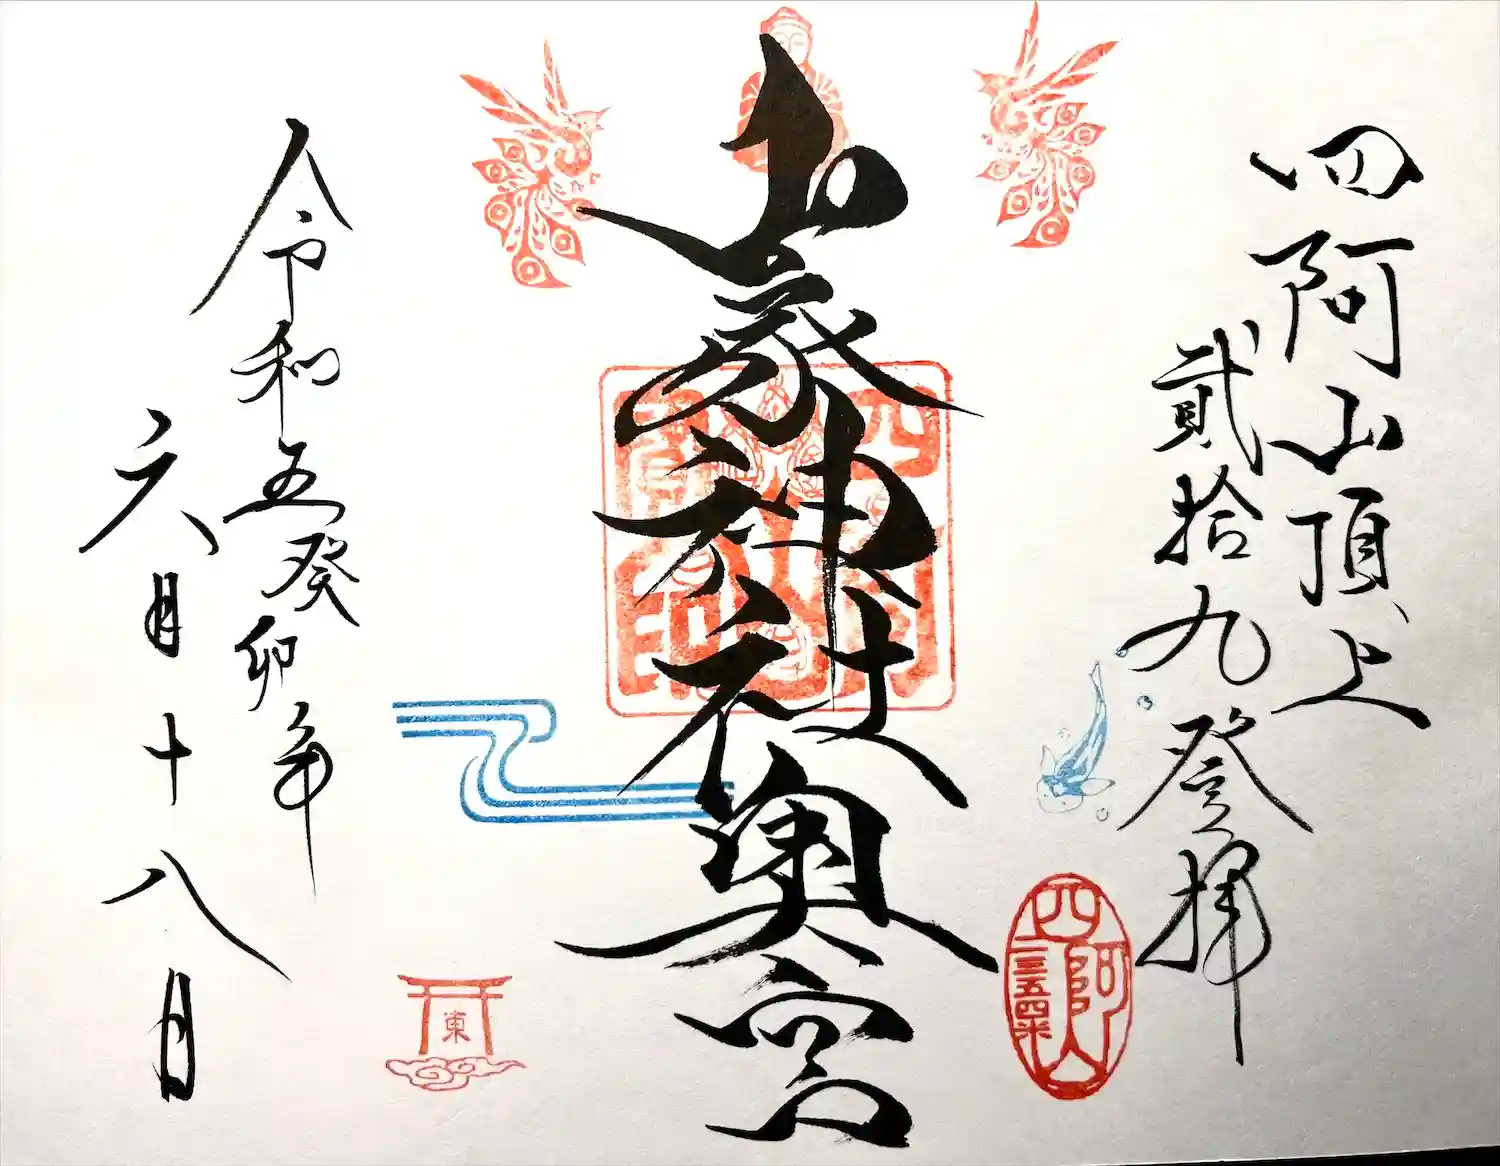 四阿山頂上
貳拾九登拝
山家神社奥宮
令和五癸卯年
六月十八日
四阿山
二三五四米
東